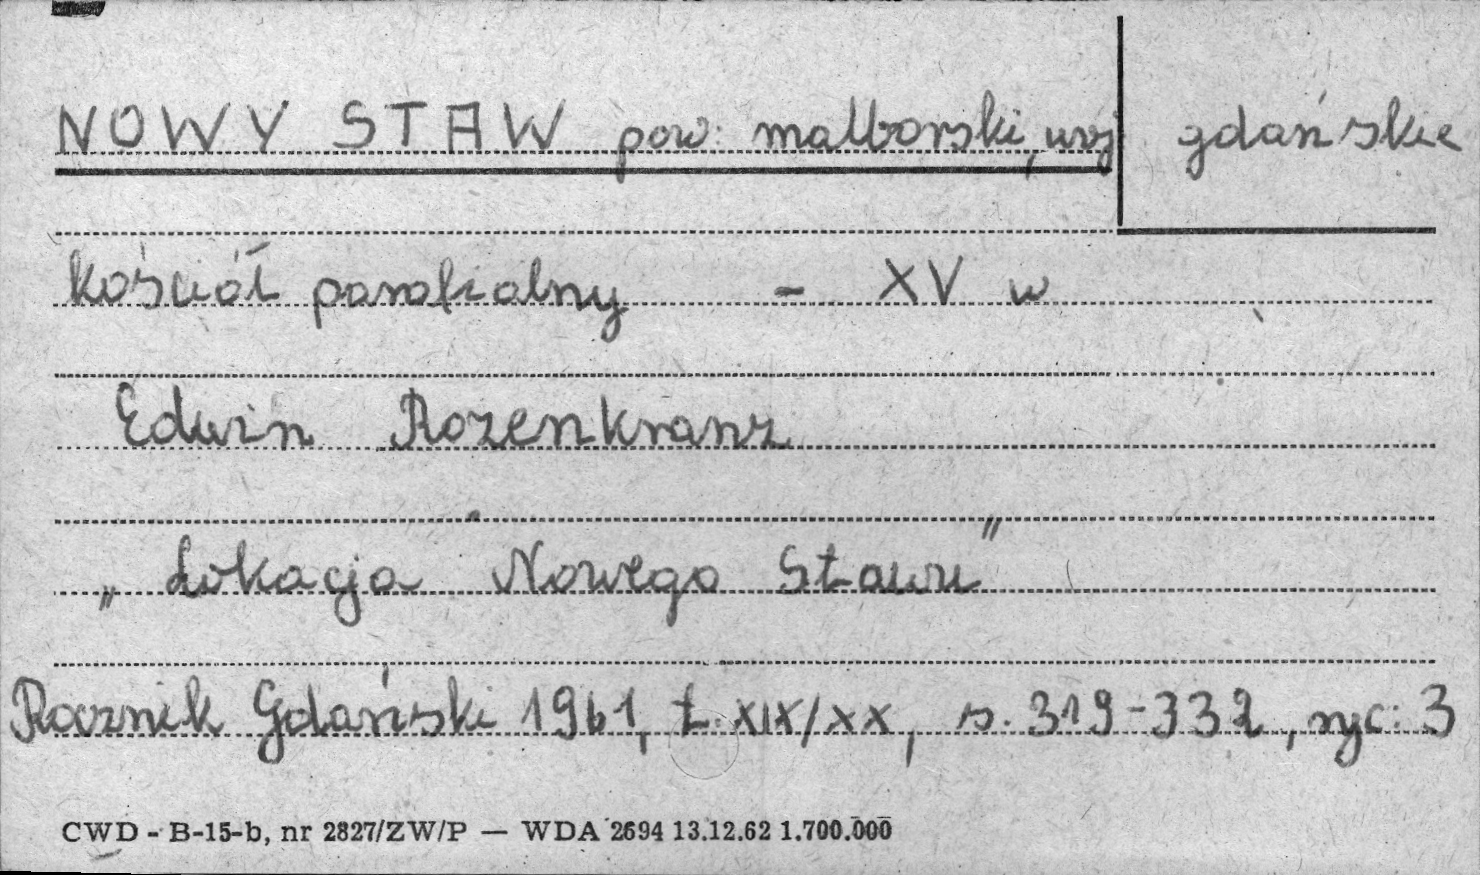 NOWY STAW pow. malborski, woj gdańskie
kościół parafialny - XV w
Edwin Rozenkranz
„Lokacja Nowego Stawu”
Rocznik Gdański 1961, t. XIX/XX, s. 319-332, ryc: 3
CWD - B-15-b, nr 2827/ZW/P — WDA 2694 13.12.62 1.700.000